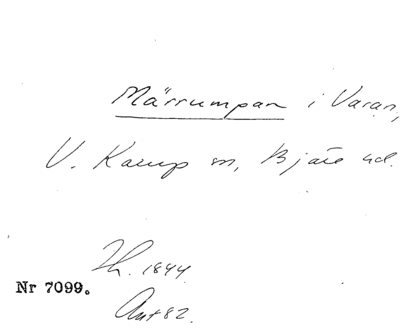 Märrumpan i Varan,
V. Karup sn, Bjäre hd.
Th. 1844
Nr 7099.
Ant 82.